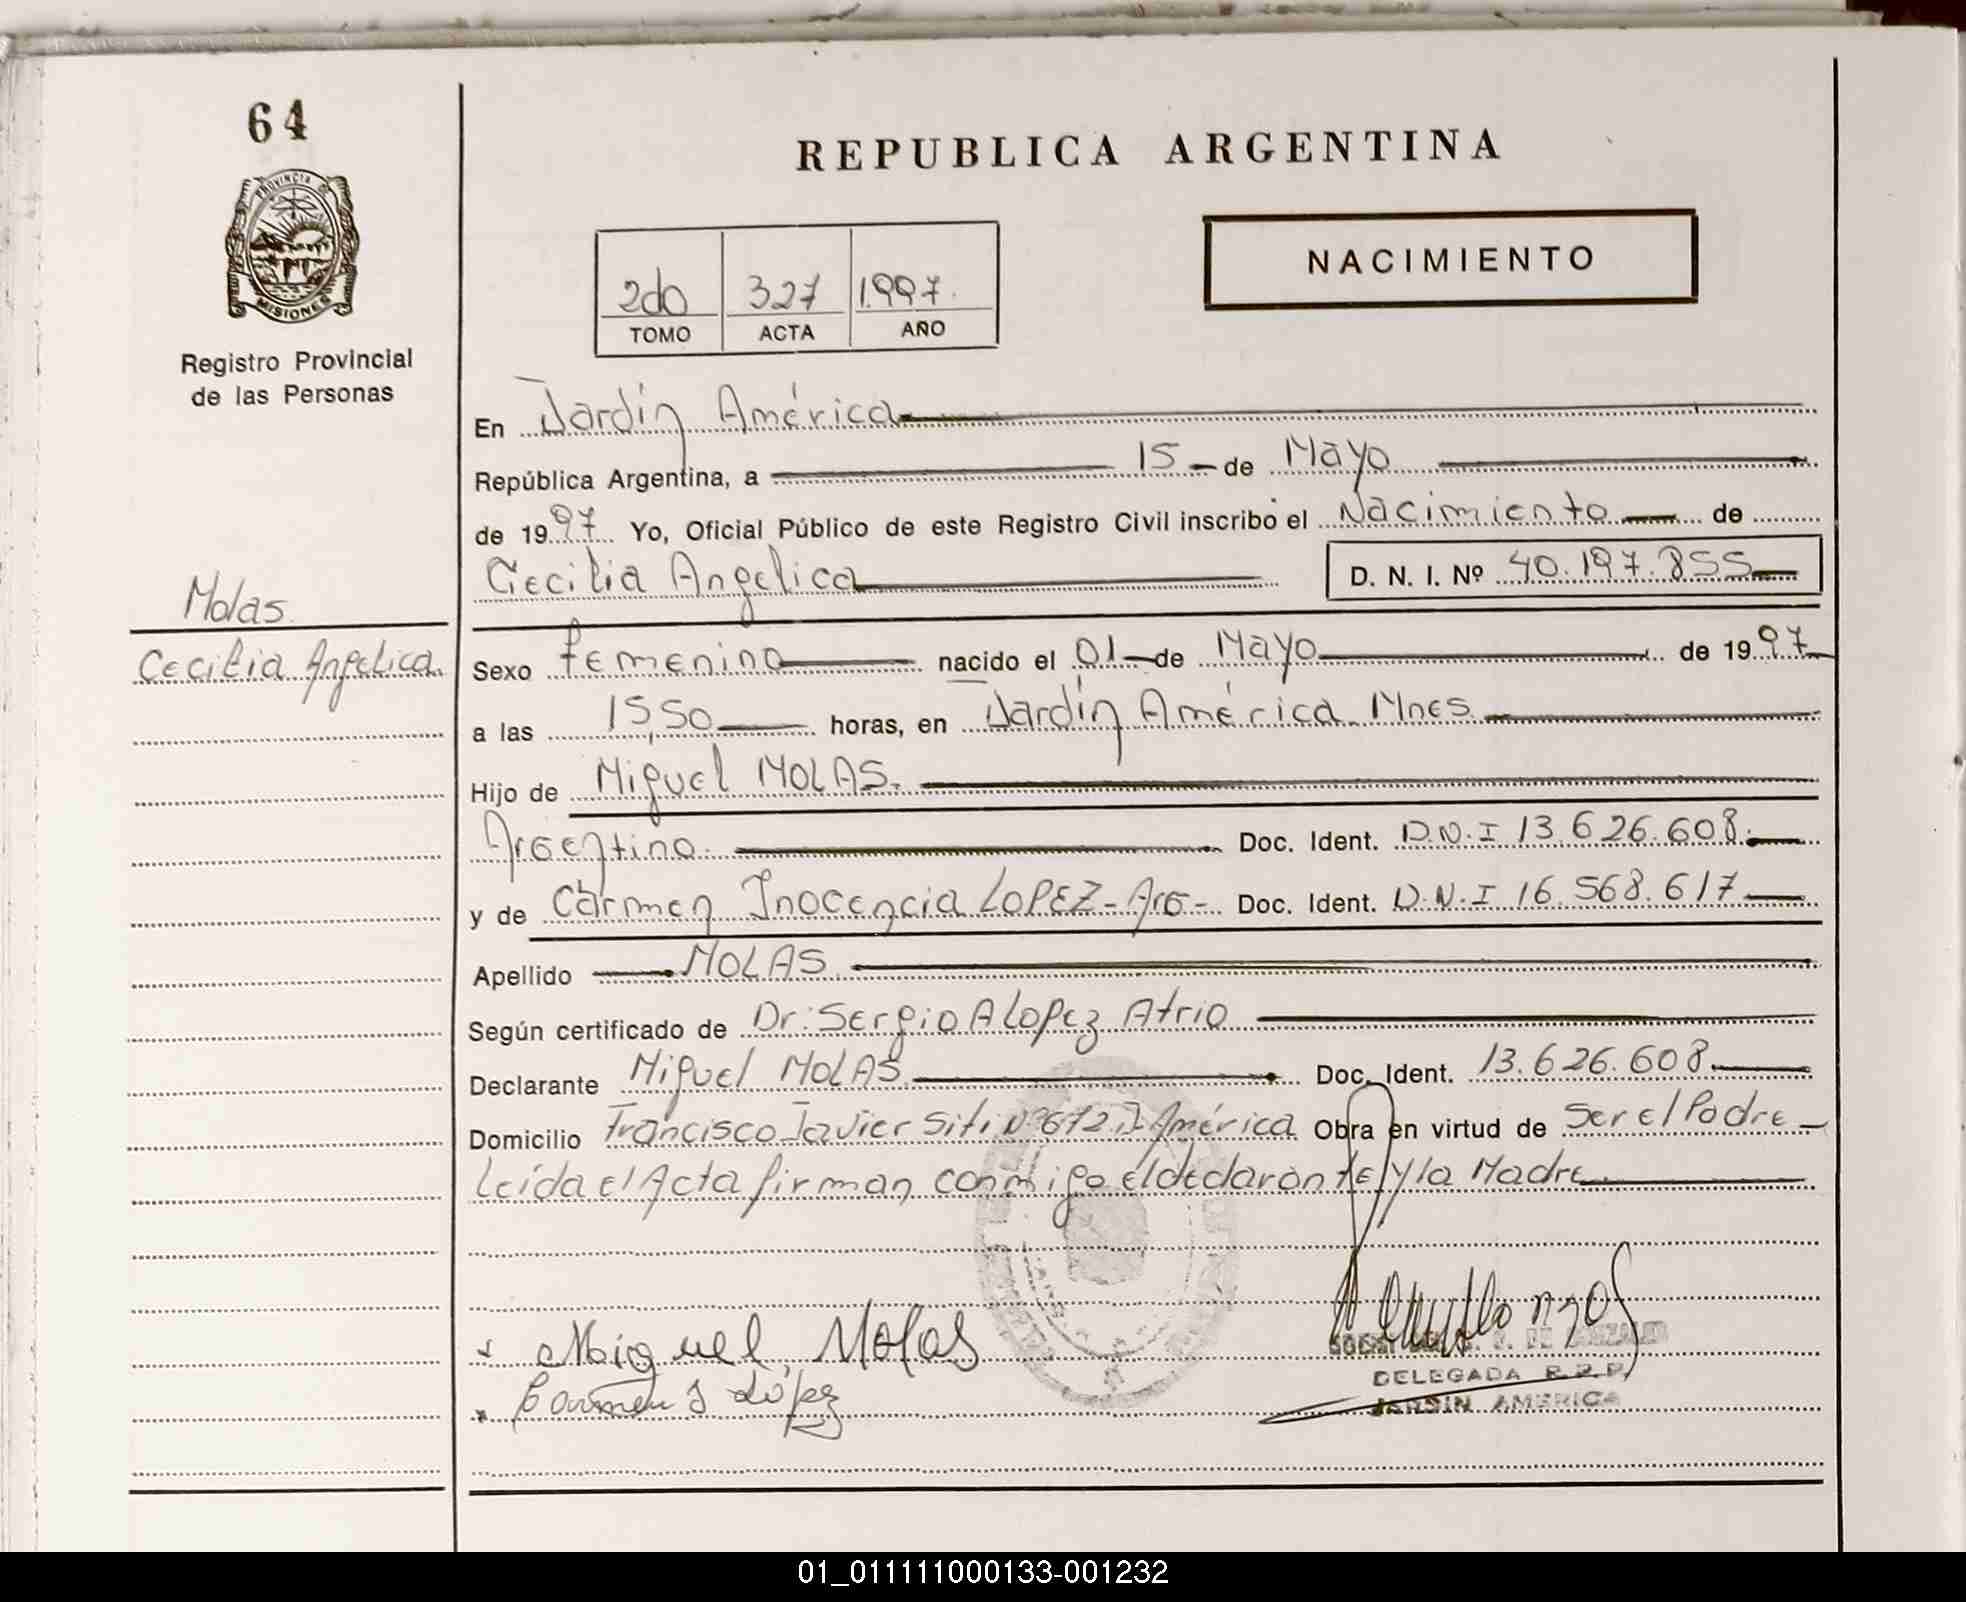 64
REPUBLICA ARGENTINA
PROVINCIA DE
MISIONES
NACIMIENTO
2do 327 1997.
TOMO ACTA AÑO
Registro Provincial
de las Personas
En Jardín América
República Argentina, a 15 de Mayo
de 1997 Yo, Oficial Público de este Registro Civil inscribo el Nacimiento de
Cecilia Angelica D. N. I. Nº 40.197.855
Molas
Cecilia Angelica
Sexo Femenino nacido el 01 de Mayo de 1997
a las 15,50 horas, en Jardín América Mnes
Hijo de Miguel MOLAS.
Argentino. Doc. Ident. D.N.I 13.626.608.
y de Carmen Inocencia LOPEZ - Arg - Doc. Ident. D.N.I 16.568.617
Apellido MOLAS
Según certificado de Dr: Sergio A Lopez Atrio
Declarante Miguel MOLAS Doc. Ident. 13.626.608
Domicilio Francisco Javier Siti Nº 672 J. América Obra en virtud de Ser el Padre
Leída el Acta firman conmigo el declarante y la Madre
Miguel Molas
Carmen I López
DE GONZALEZ
DELEGADA R.P.P.
JARDIN AMERICA
01_011111000133-001232